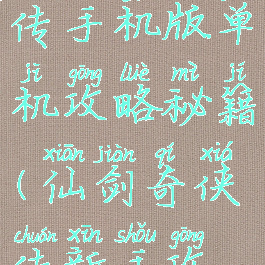 传手机版单
jī gōng lüè mì jí
机攻略秘籍
xiān jiàn qí xiá
(仙剑奇侠
chuán xīn shǒu gōng
传新手攻